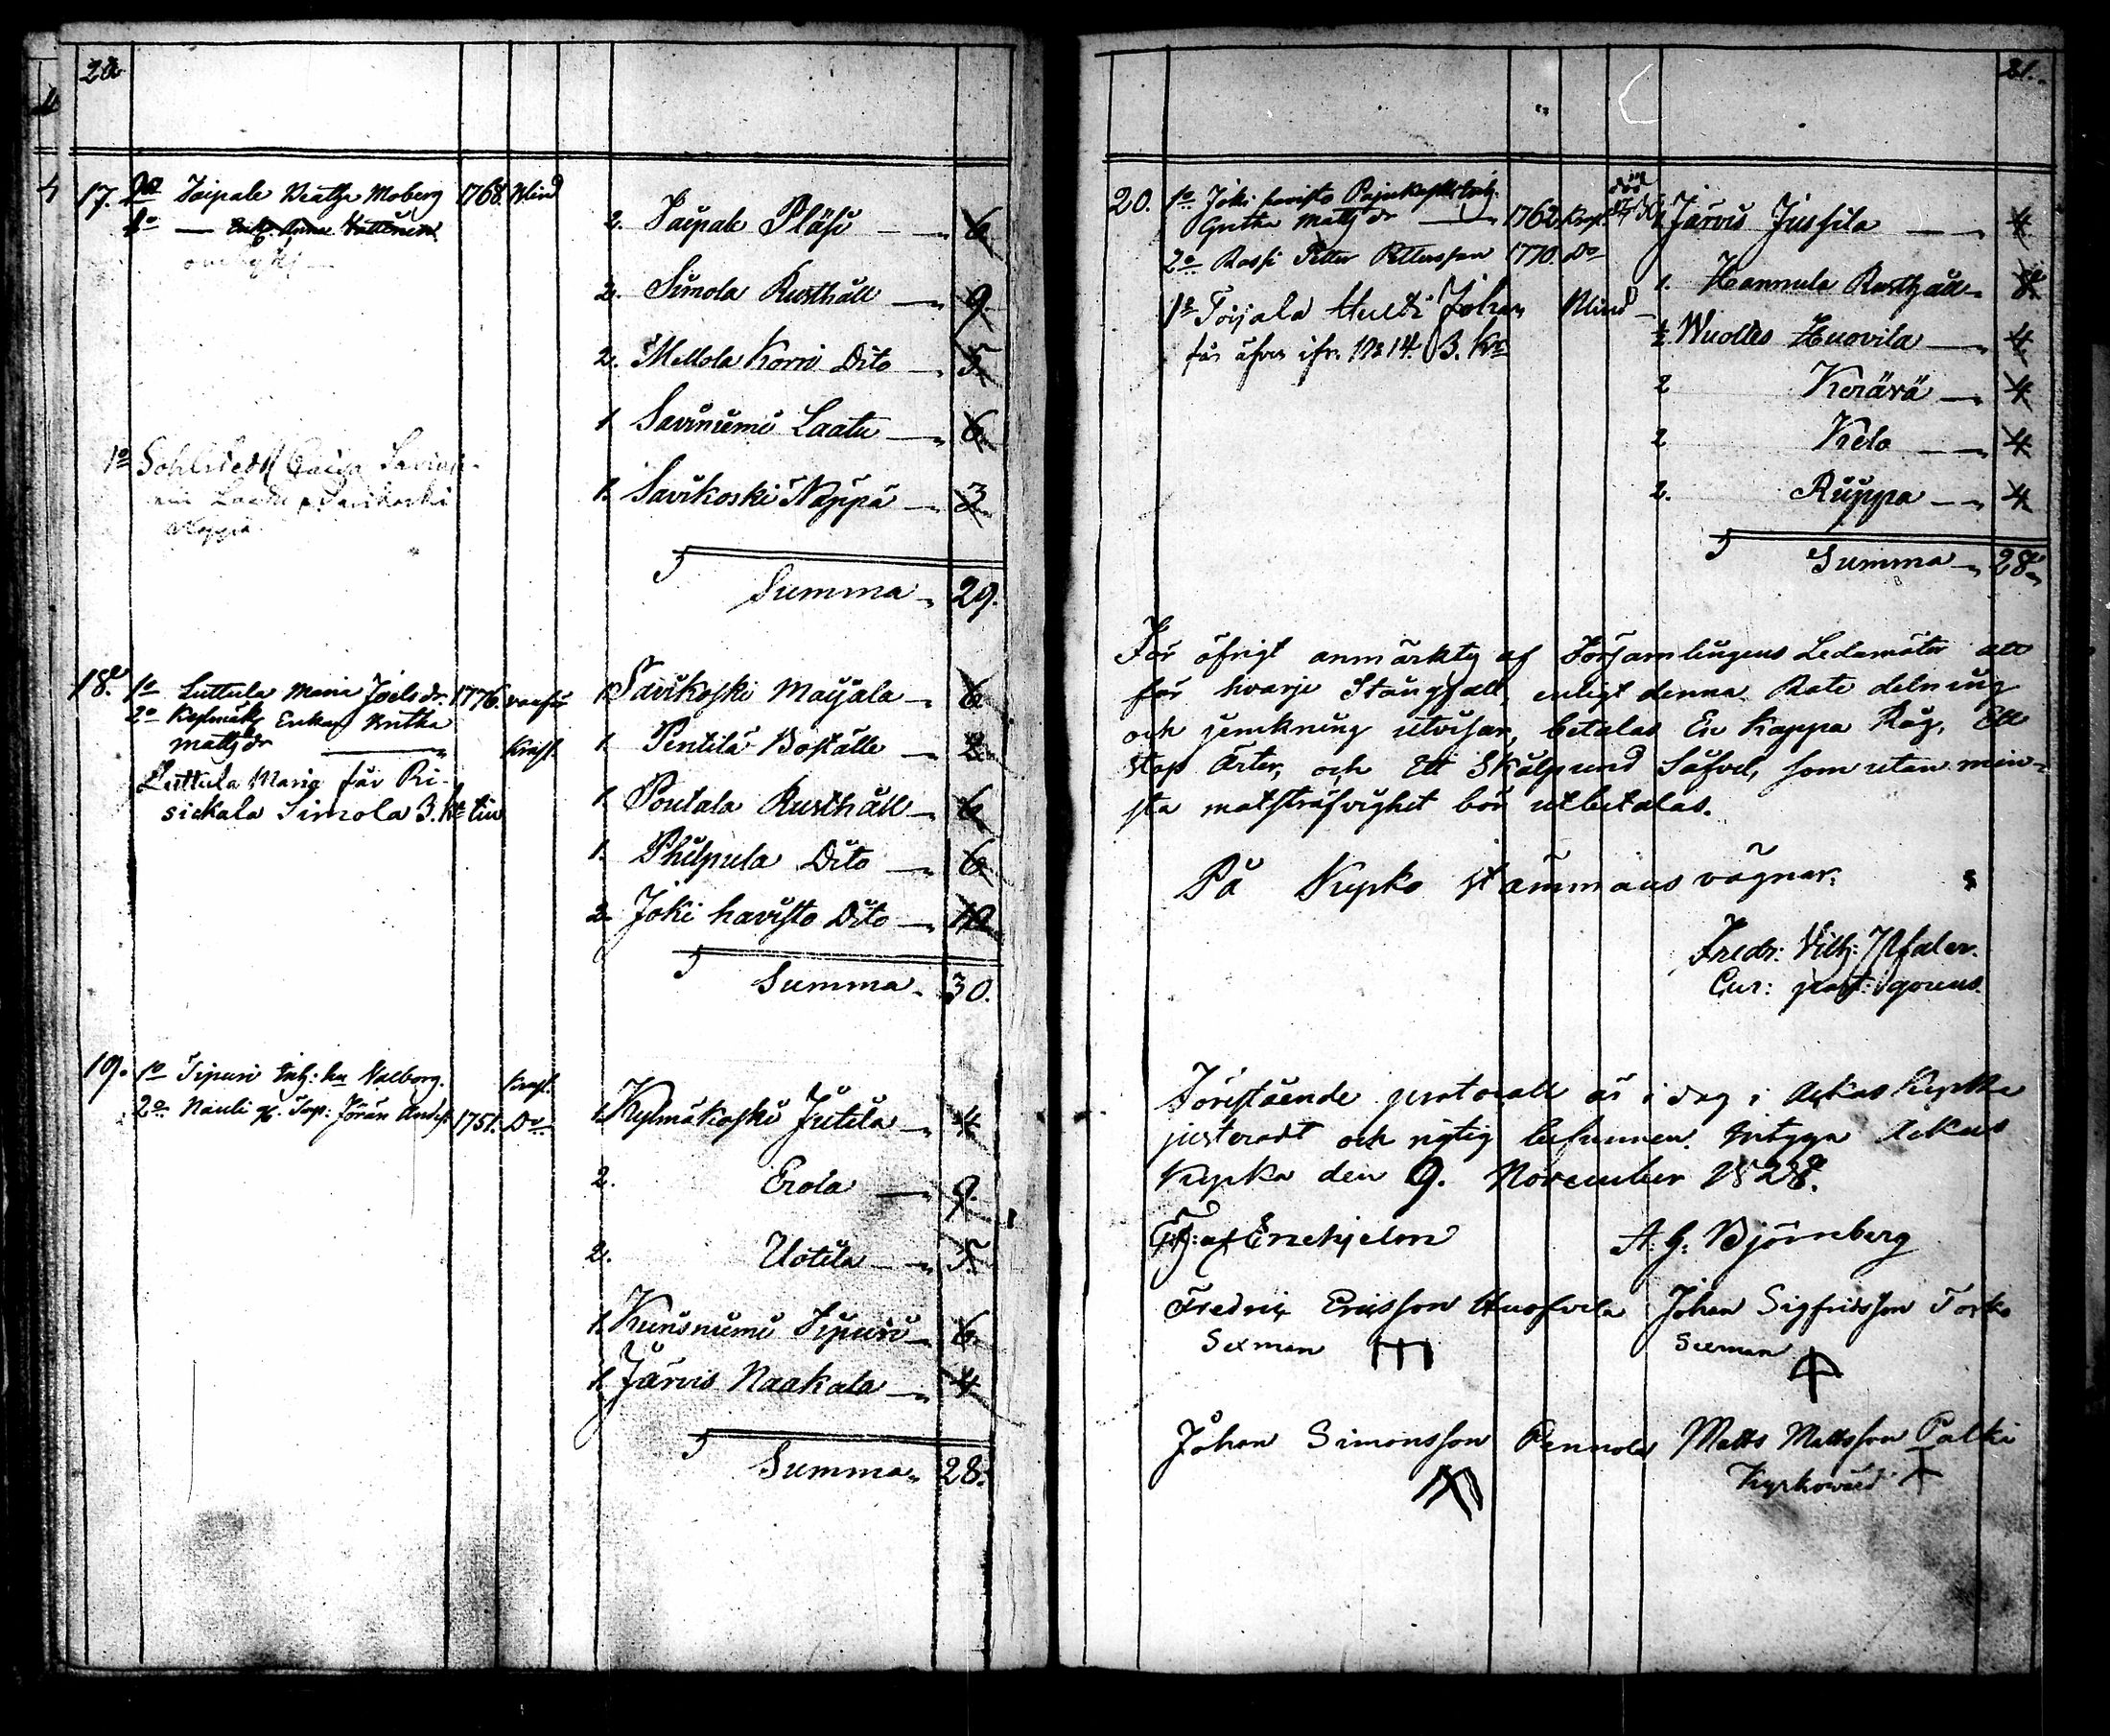 20.
17. 1o Taipale Beatha Moberg 1768. Blind
1o — Enk. Anna
2. Taipale Pläsi — 6
2. Simola Rusthåll — 9.
2. Mellola Korri Dito — 5
1 Saviniemi Laatu — 6
1. Savikoski Nappa — 3
1o Sohlstedt Caisa Savinie-
mi Laatu, Savikoski
Nappa.
Summa — 29.
18. 1o Luttula Maria Joelsdr. 1776. vanför
2o Kylmäk. Enkan Britha
Mattsdr — Krasl.
Luttula Maria får Ri-
sickala Simola 3. Kr.
1. Savikoski Maijala — 6
1. Pentilä Boställe — 2
1. Poutala Rusthåll — 6
1. Philpula Dito — 6
2. Joki havisto Dito — 10
Summa — 30.
19. 1o Sipuri Inh: hu Valborg. Krasl.
2o Nauli Jöran Anders. 1751. Do
1. Kylmäkoski Jutila — 4
2. Erola — 9.
2. Uotila — 5.
1. Kurisniemi Sipuri — 6.
1. Jarvis Naakala — 4
Summa — 28.
21.
20. 1o Joki havisto Pajukoski Inh.
Gretha Mattsdr — 1762 Krasl. död
2o Rossi Petter Pettersson 1770. Do
1o Toijala Hulti Johan Blind
får äfven ifr. No 14. 3. Kr
Järvis Jussila — 4
1. Hannula Rusthåll — 8
1/2 Wuolles Huovila — 4
2 Kerärä — 4
2 Kelo — 4
2. Ruppa — 4
Summa — 28
För öfrigt anmärktes af Församlingens Ledamöter att
för hvarje Stångfall, enligt denna Rote delning
och jemkning utvisar, betalas En Kappa Råg, Ett
stop Ärter, och Ett Skålpund Sofvel, som utan min-
sta motsträfvighet bör utbetalas.
På Kyrko stämmans vägnar.
Fredr: Vilh: Pfaler.
Cur: past: Vgorens.
Förestående protocoll är i dag i Ackas Kyrka
justeradt och rigtig befunnen. Intyga Ackas
Kyrka den 9. November 1828.
af Enehjelm A. G. Björnberg
Fredrik Ericsson Huofvila Johan Sigfridsson Torko
Sexman Sexman
Johan Simonsson Pennola Matts Mattsson Palki
Kyrkovärd